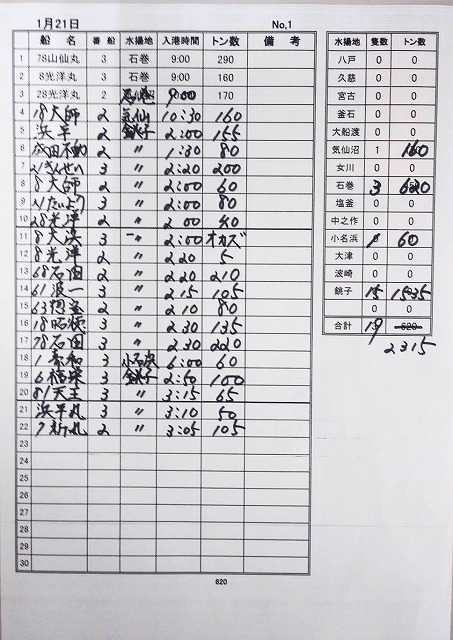 1月21日 No,1
船名 番船 水揚地 入港時間 トン数 備考
1 78山仙丸 3 石巻 9:00 290
2 8光洋丸 3 石巻 9:00 160
3 28光洋丸 2 石巻 9:00 170
4 18大師 2 気仙 10:30 160
5 浜平 2 銚子 2:00 155
6 成田不動 2 〃 1:30 80
7 21きんせい 3 〃 2:20 200
8 8大師 2 〃 2:00 60
9 21たいよう 3 〃 2:00 80
10 28光洋 2 〃 2 00 40
11 8大浜 3 〃 2:00 オカズ
12 8光洋 2 〃 2 20 5
13 68石田 2 〃 2 20 210
14 61源一 3 〃 2 15 105
15 63惣宝 2 〃 2 10 80
16 18昭徳 3 〃 2 30 135
17 78石田 3 〃 2 30 220
18 1幸和 3 小名浜 6:00 60
19 6福栄 3 銚子 2:50 100
20 81天王 3 〃 3:15 65
21 浜平丸 3 〃 3:10 50
22 7新丸 2 〃 3:05 105
23
24
25
26
27
28
29
30
620
水揚地 隻数 トン数
八戸 0 0
久慈 0 0
宮古 0 0
釜石 0 0
大船渡 0 0
気仙沼 1 160
女川 0 0
石巻 3 620
塩釜 0 0
中之作 0 0
小名浜 1 60
大津 0 0
波崎 0 0
銚子 15 1535
0 0
合計 19 620
2315